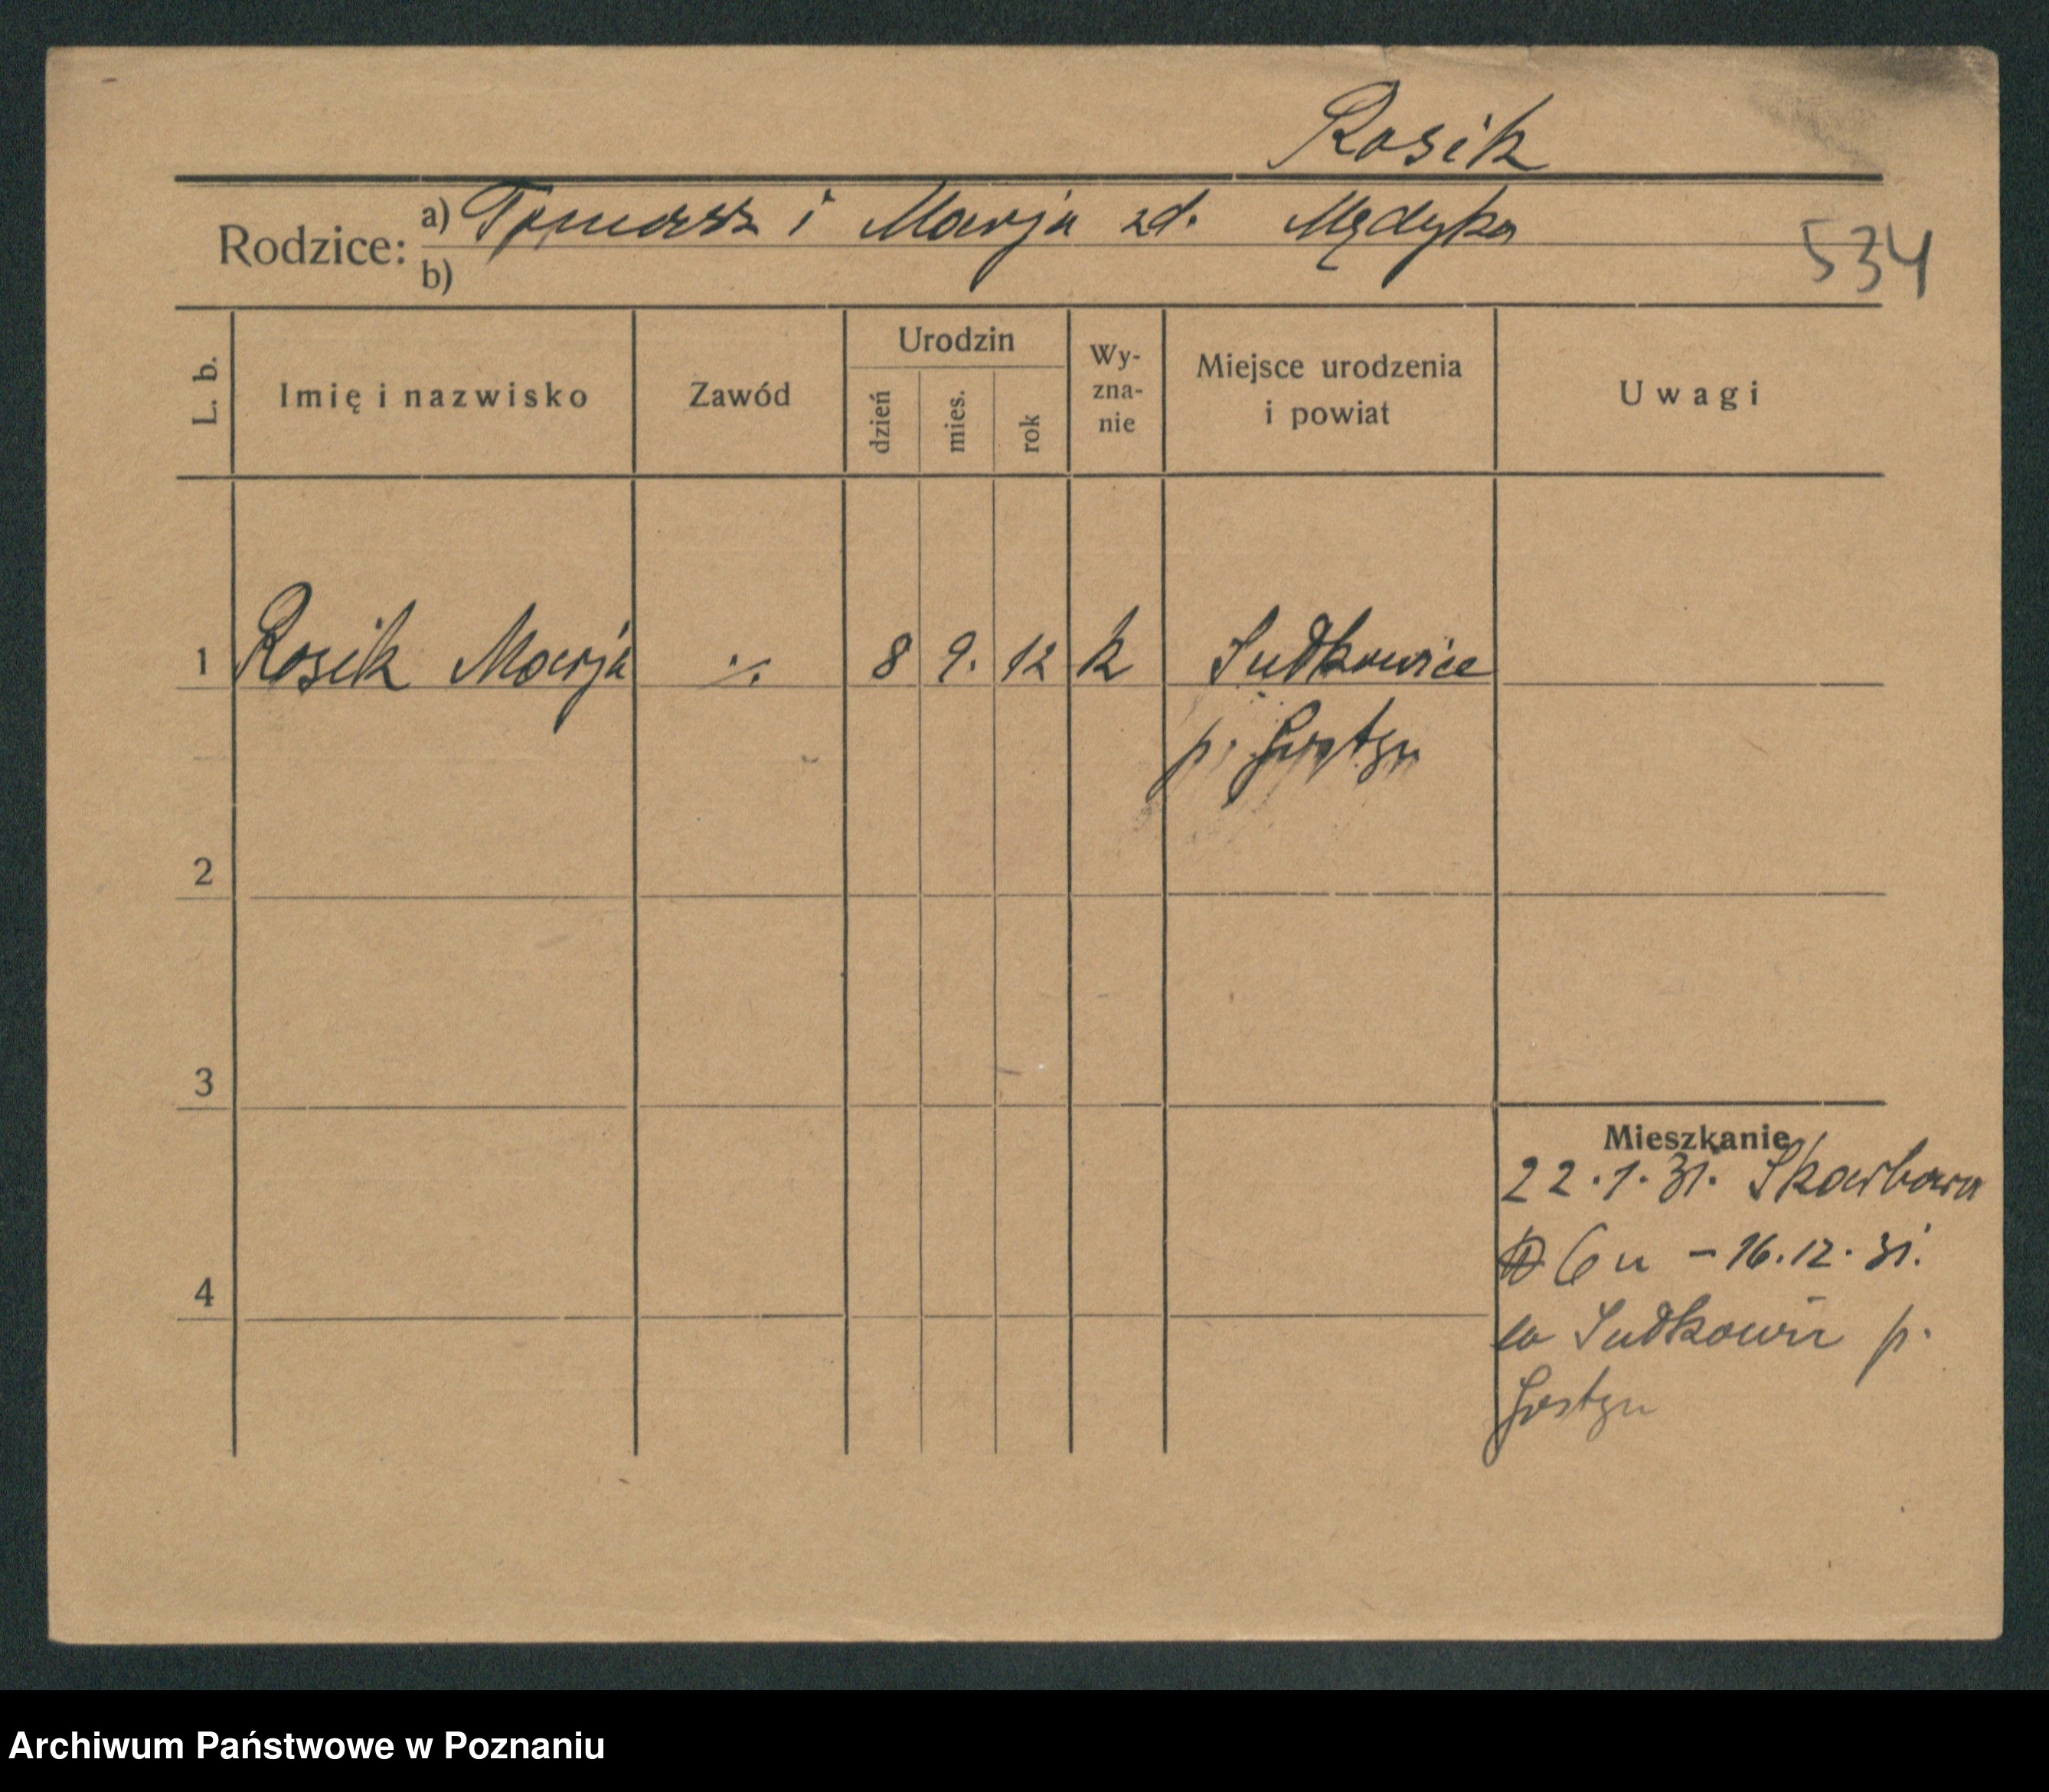 Rosik
Rodzice: a) Tomasz i Marja zd. Mędyka
b)
534
L. b.
Imię i nazwisko
Zawód
Urodzin
dzień
mies.
rok
Wy-
zna-
nie
Miejsce urodzenia
i powiat
Uwagi
1 Rosik Marja ./. 8 9. 12 k Sudkowice
p. Gostyn
2
3
4
Mieszkanie
22.1.31. Skarbowa
6 u – 16.12.31.
Sudkowic p.
Gostyn
Archiwum Państwowe w Poznaniu